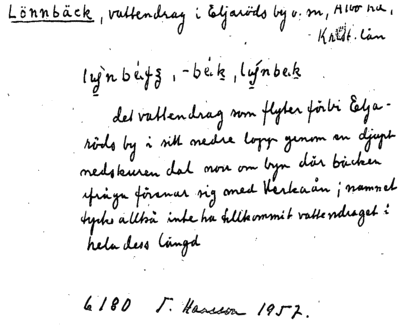 Lönnbäck, vattendrag i Eljaröds by o. sn, Albo hd,
Krist. län
-bék,
det vattendrag som flyter förbi Elja-
röds by i sitt nedre lopp genom en djupt
nedskuren dal norr om byn där bäcken
ifråga förenar sig med Verkaån; namnet
tycks alltså inte ha tillkommit vattendraget i
hela dess längd
6180 Hansson 1957.